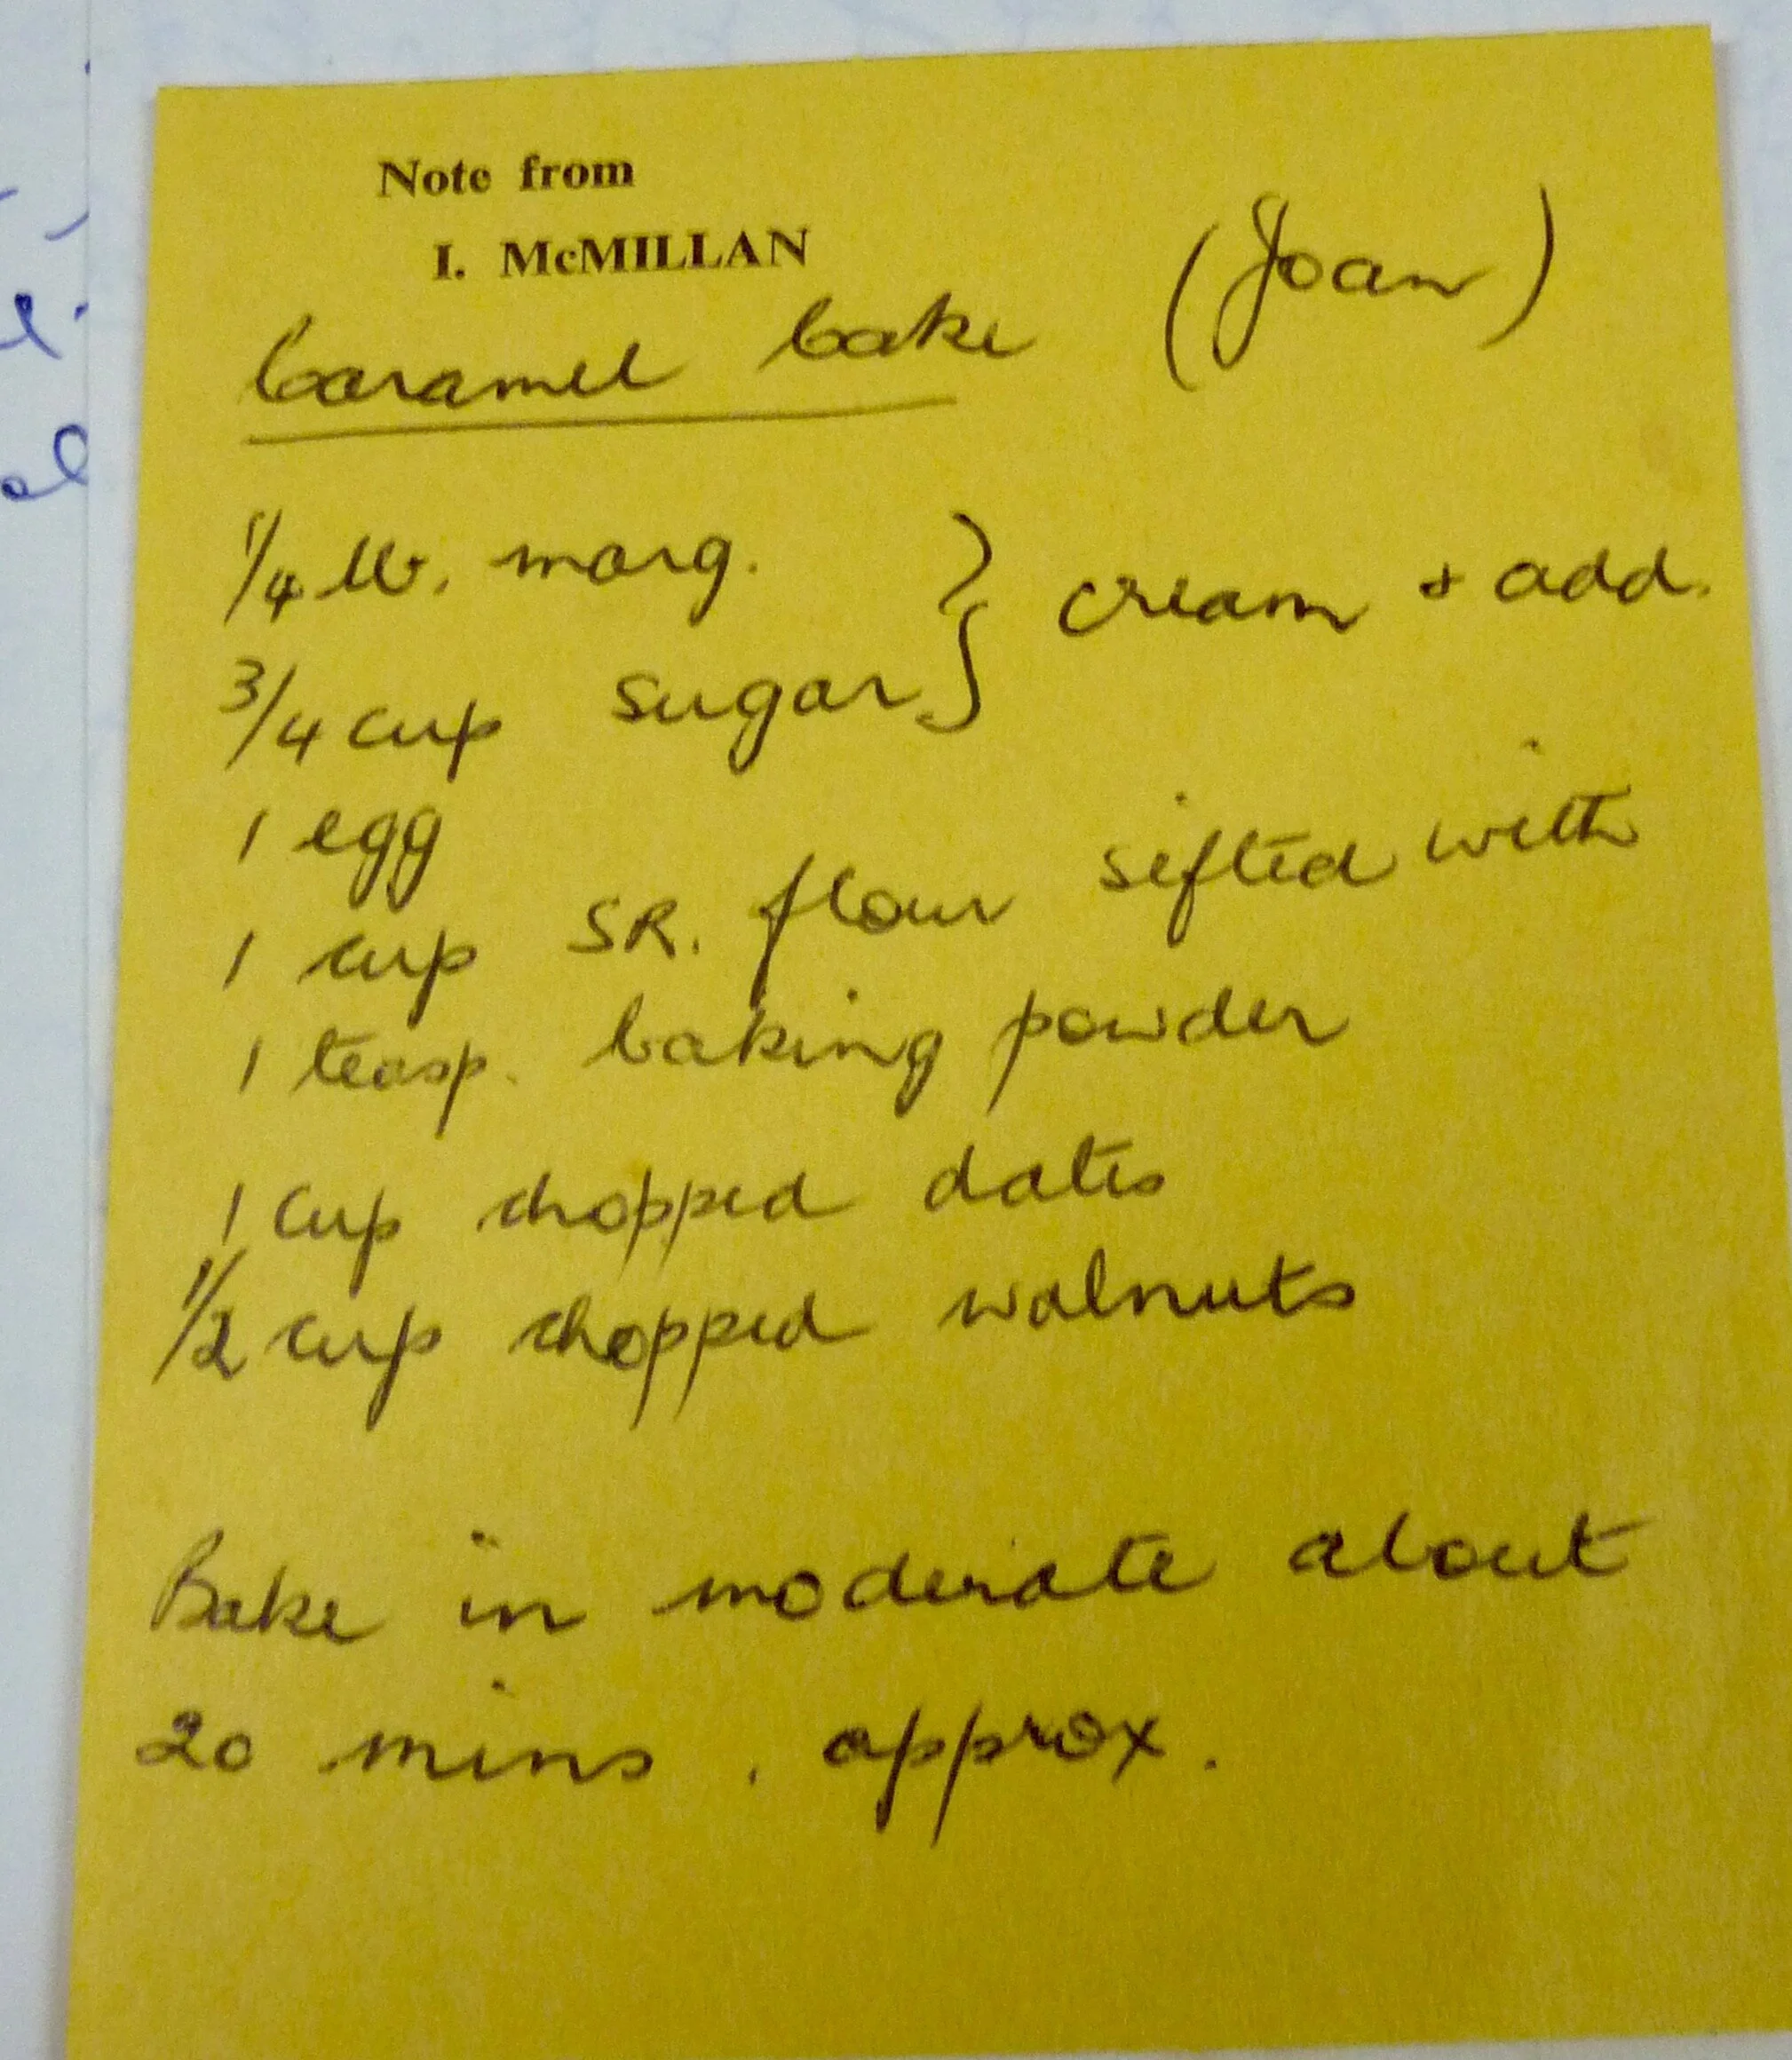 Note from
I. McMILLAN
(Joan)
Caramel Cake
1/4 lb. marg. } cream + add.
3/4 cup sugar
1 egg
1 cup SR. flour sifted with
1 teasp. baking powder
1 cup chopped dates
1/2 cup chopped walnuts
Bake in moderate about
20 mins. approx.